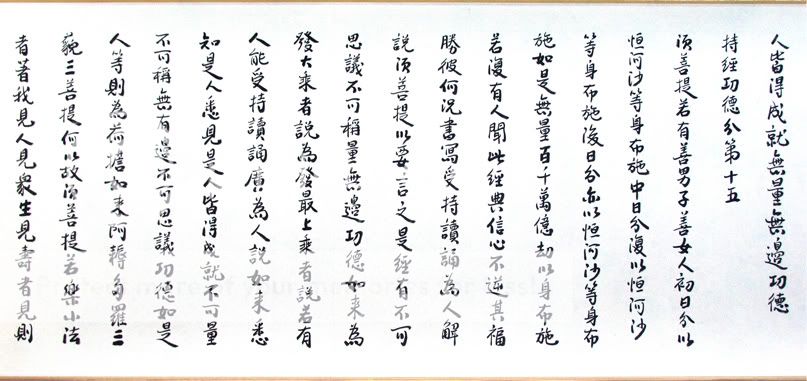 人皆得成就無量無邊功德
持經功德分第十五
須菩提若有善男子善女人初日分以
恒河沙等身布施中日分復以恒河沙
等身布施後日分亦以恒河沙等身布
施如是無量百千萬億劫以身布施
若復有人聞此經典信心不逆其福
勝彼何況書寫受持讀誦為人解
說須菩提以要言之是經有不可
思議不可稱量無邊功德如來為
發大乘者說為發最上乘者說若有
人能受持讀誦廣為人說如來悉
知是人悉見是人皆得成就不可量
不可稱無有邊不可思議功德如是
人等則為荷擔如來阿耨多羅三
藐三菩提何以故須菩提若樂小法
者著我見人見衆生見壽者見則